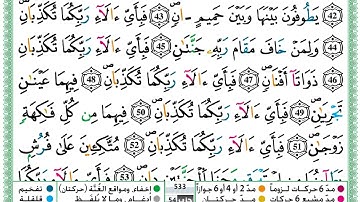 ٤٢ يَطُوفُونَ بَيْنَهَا وَبَيْنَ حَمِيمٍ ءَانٍ ٤٣ فَبِأَيِّ ءَالَآءِ رَبِّكُمَا تُكَذِّبَانِ
٤٤ وَلِمَنْ خَافَ مَقَامَ رَبِّهِۦ جَنَّتَانِ ٤٥ فَبِأَيِّ ءَالَآءِ رَبِّكُمَا تُكَذِّبَانِ
٤٦ ذَوَاتَآ أَفْنَانٍ ٤٧ فَبِأَيِّ ءَالَآءِ رَبِّكُمَا تُكَذِّبَانِ ٤٨ فِيهِمَا عَيْنَانِ
تَجْرِيَانِ ٤٩ فَبِأَيِّ ءَالَآءِ رَبِّكُمَا تُكَذِّبَانِ ٥٠ فِيهِمَا مِن كُلِّ فَٰكِهَةٍ
زَوْجَانِ ٥١ فَبِأَيِّ ءَالَآءِ رَبِّكُمَا تُكَذِّبَانِ ٥٢ مُتَّكِـِٔينَ عَلَىٰ فُرُشٍۭ
533
مدّ 6 حركات لزوماً مدّ 2 أو 4 أو 6 جوازاً إخفاء، ومواقع الغُنَّة (حركتان) تفخيم
مدّ مشبع 6 حركات مدّ حركتان إدغام، وما لا يُلفَظ قلقلة